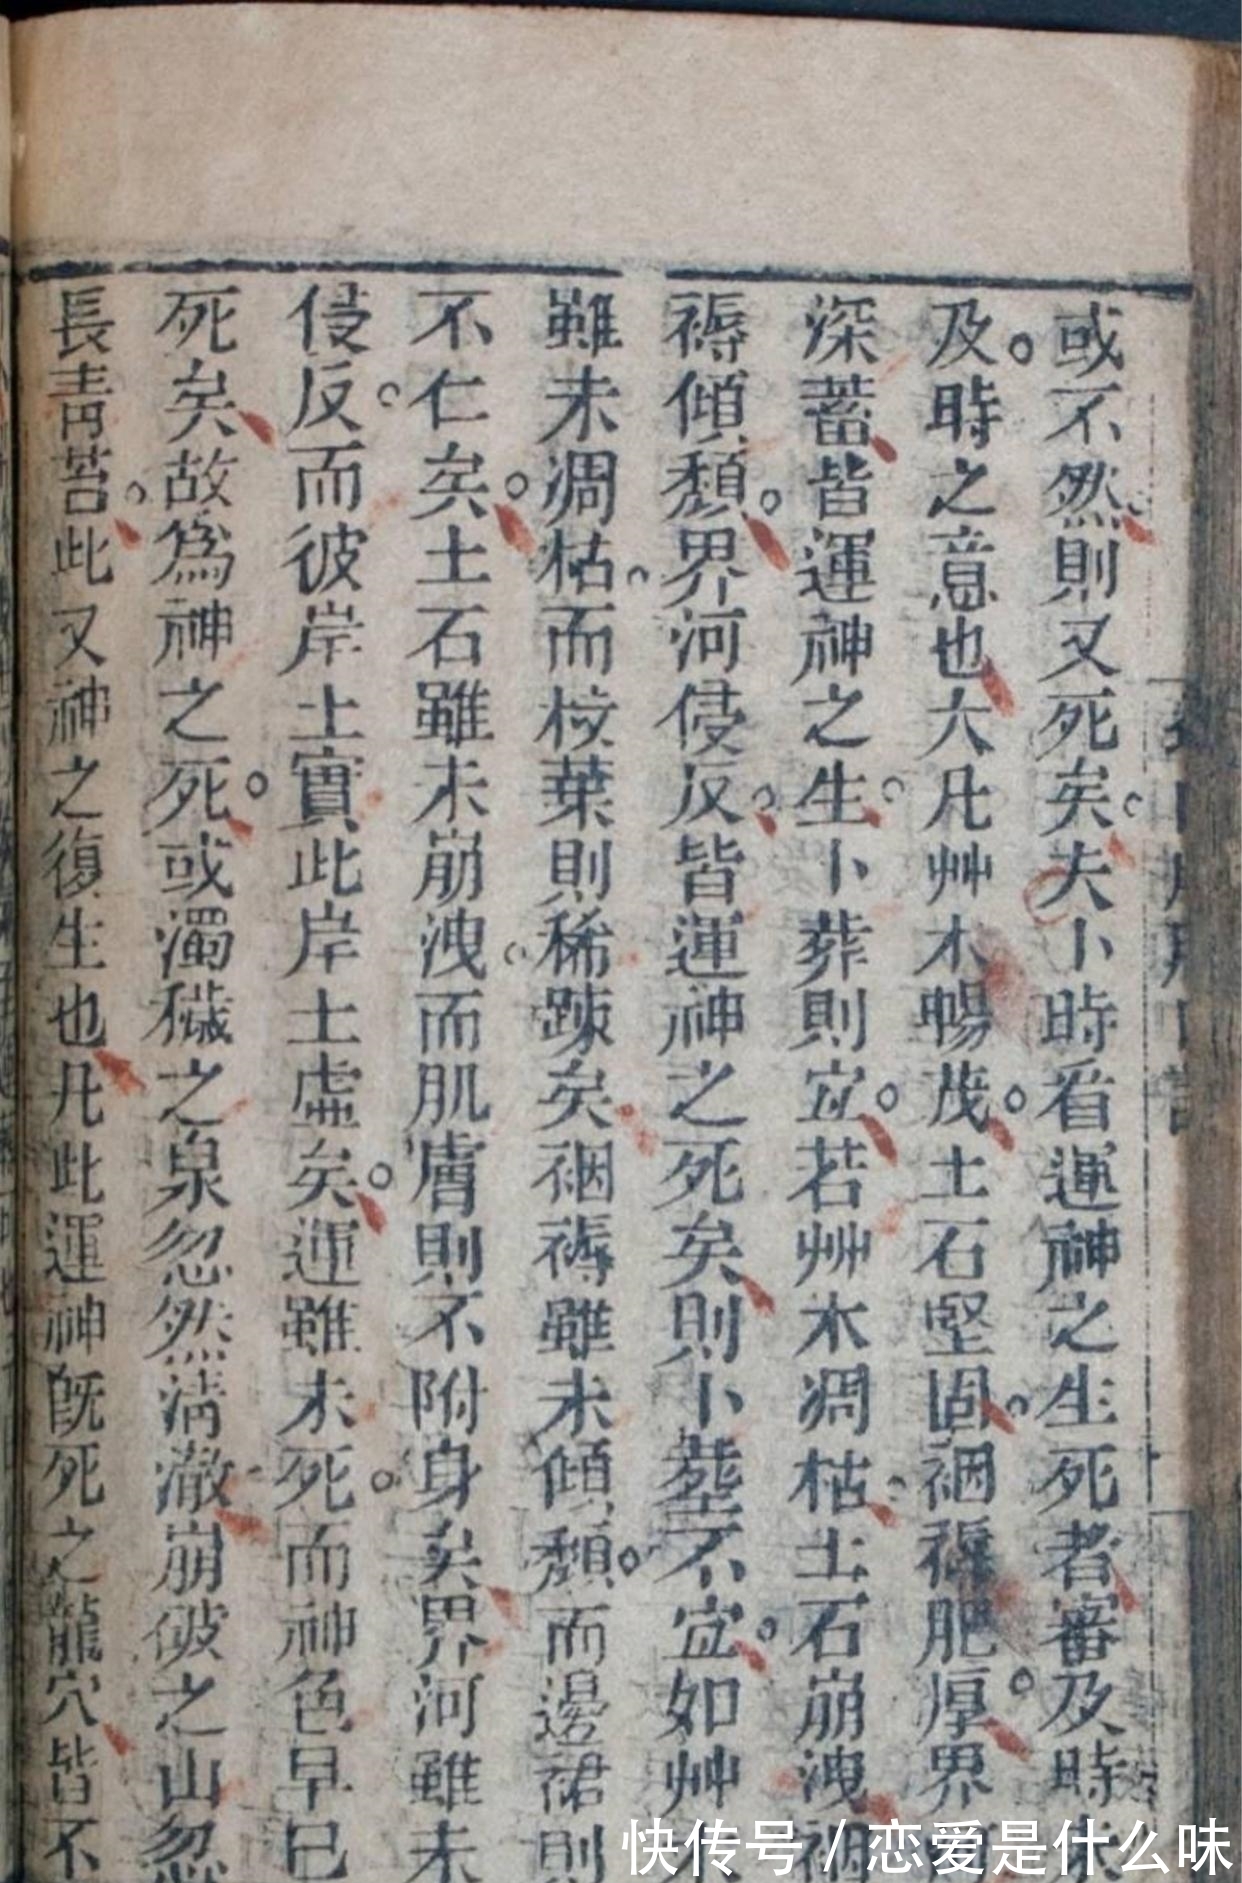 或不然則又死矣夫卜時看運神之生死者審及時
及時之意也大凡艸木暢茂土石堅固裀褥肥厚界
深蓄皆運神之生卜葬則宜若艸木凋枯土石崩洩裀
褥傾頹界河侵反皆運神之死矣則卜塟不宜如艸
雖未凋枯而枝葉則稀踈矣裀褥雖未傾頹而邊裙則
不仁矣土石雖未崩洩而肌膚則不附身矣界河雖未
侵反而彼岸土實此岸土虛矣運雖未死而神色早已
死矣故為神之死或濁穢之泉忽然清澈崩破之山忽
長靑苔此又神之復生也凡此運神旣死之龍穴皆不
快传号/恋爱是什么味